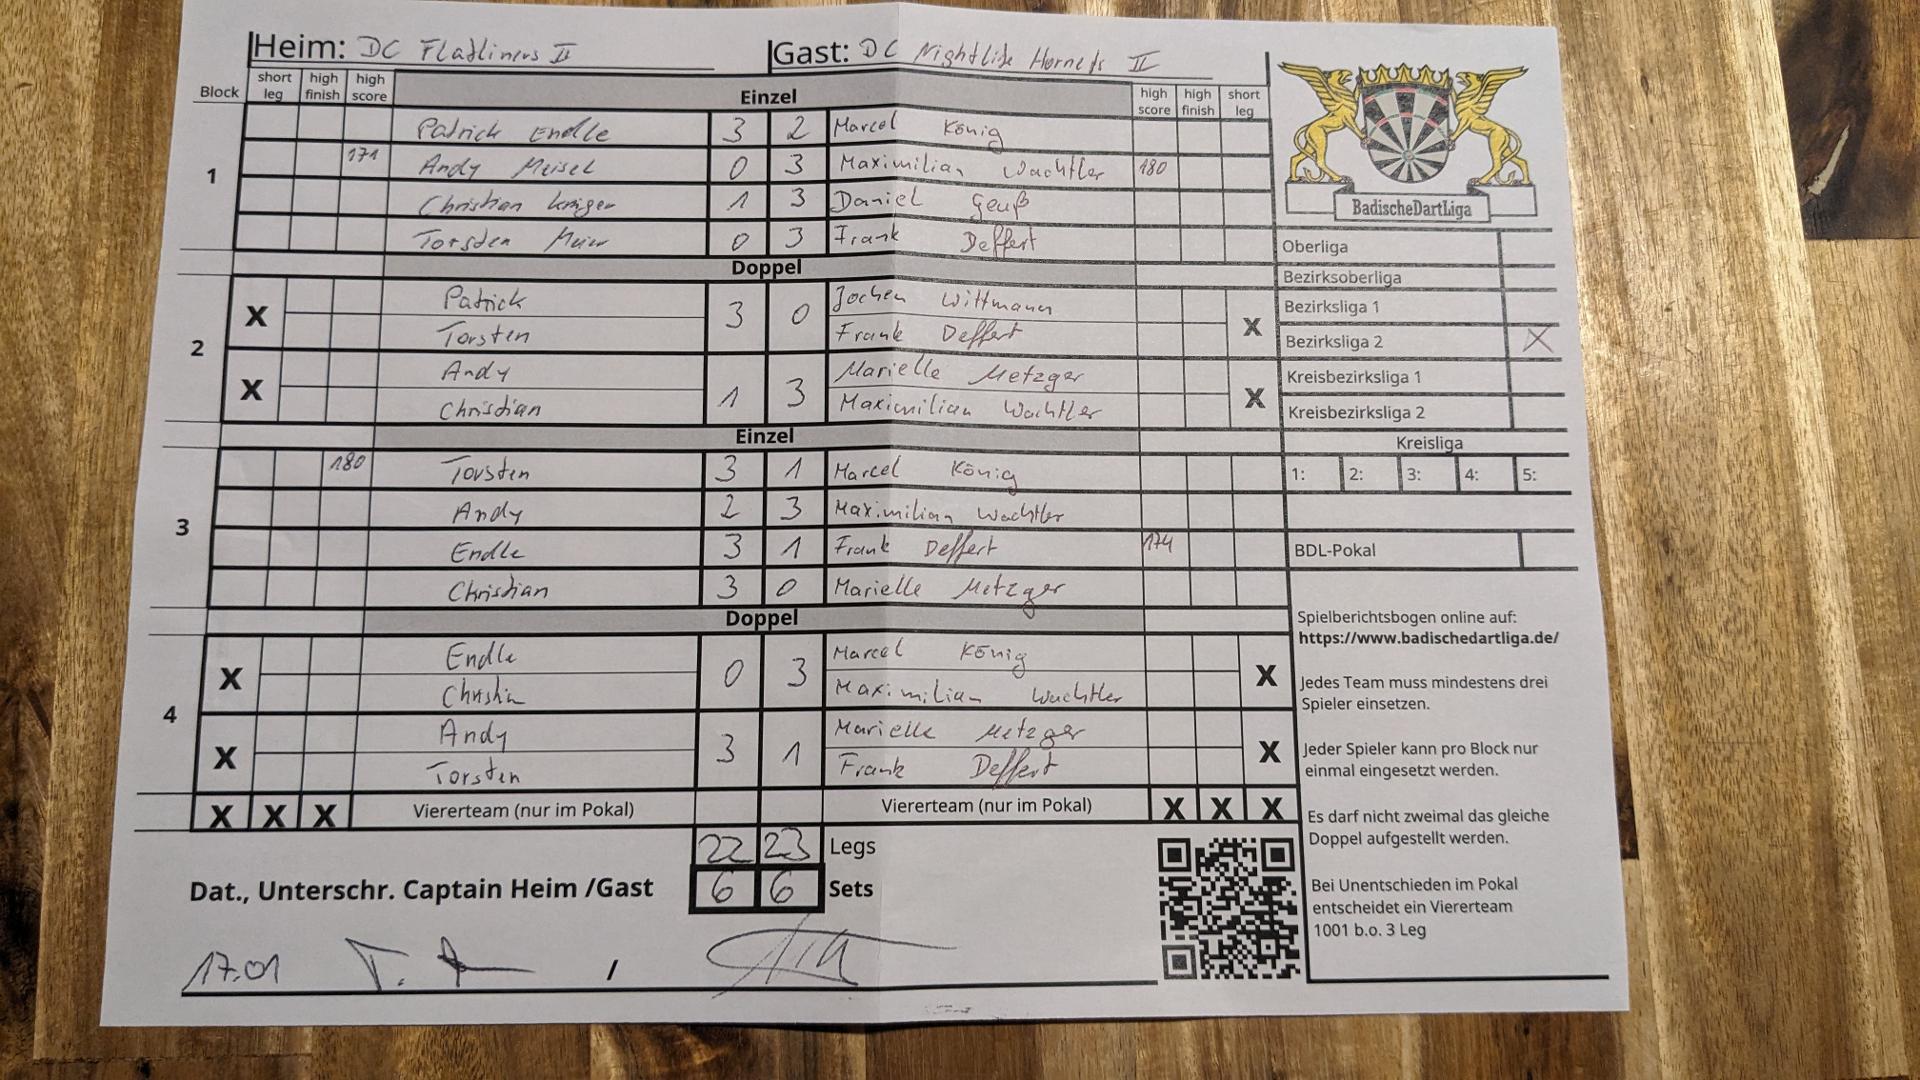 Heim: DC Flatliners II Gast: DC Nightlife Hornets II
Block short leg high finish high score Einzel high score high finish short leg
1
Patrick Endle 3 2 Marcel König
171 Andy Meisel 0 3 Maximilian Wachtler 180
Christian Krüger 1 3 Daniel Geuß
Torsten Meier 0 3 Frank Deffert
Doppel
2
X Patrick 3 0 Jochen Wittmann X
Torsten Frank Deffert
X Andy 1 3 Marielle Metzger X
Christian Maximilian Wachtler
Einzel
3
180 Torsten 3 1 Marcel König
Andy 2 3 Maximilian Wachtler
Endle 3 1 Frank Deffert 174
Christian 3 0 Marielle Metzger
Doppel
4
X Endle 0 3 Marcel König X
Christian Maximilian Wachtler
X Andy 3 1 Marielle Metzger X
Torsten Frank Deffert
X X X Viererteam (nur im Pokal) Viererteam (nur im Pokal) X X X
22 23 Legs
Dat., Unterschr. Captain Heim /Gast 6 6 Sets
17.01 /
BadischeDartLiga
Oberliga
Bezirksoberliga
Bezirksliga 1
Bezirksliga 2 X
Kreisbezirksliga 1
Kreisbezirksliga 2
Kreisliga
1: 2: 3: 4: 5:
BDL-Pokal
Spielberichtsbogen online auf:
https://www.badischedartliga.de/
Jedes Team muss mindestens drei
Spieler einsetzen.
Jeder Spieler kann pro Block nur
einmal eingesetzt werden.
Es darf nicht zweimal das gleiche
Doppel aufgestellt werden.
Bei Unentschieden im Pokal
entscheidet ein Viererteam
1001 b.o. 3 Leg